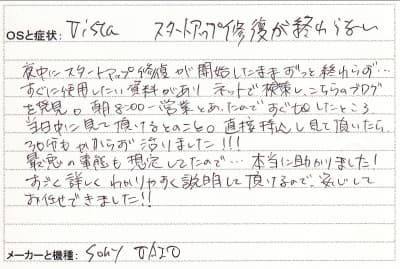 OSと症状: Vista スタートアップ修復が終わらない
夜中にスタートアップ修復が開始したままずっと終わらず…
すぐに使用したい資料があり ネットで検索し、こちらのブログ
を発見。朝8:00〜営業とあったので すぐTELしたところ
当日中に見て頂けるとのこと。直接持込し見て頂いたら
30分もかからず 治りました!!!
最悪の事態も想定してたので… 本当に助かりました!
すごく詳しく わかりやすく説明して頂けるので、安心して
お任せできました!!
メーカーと機種: Sony VAIO